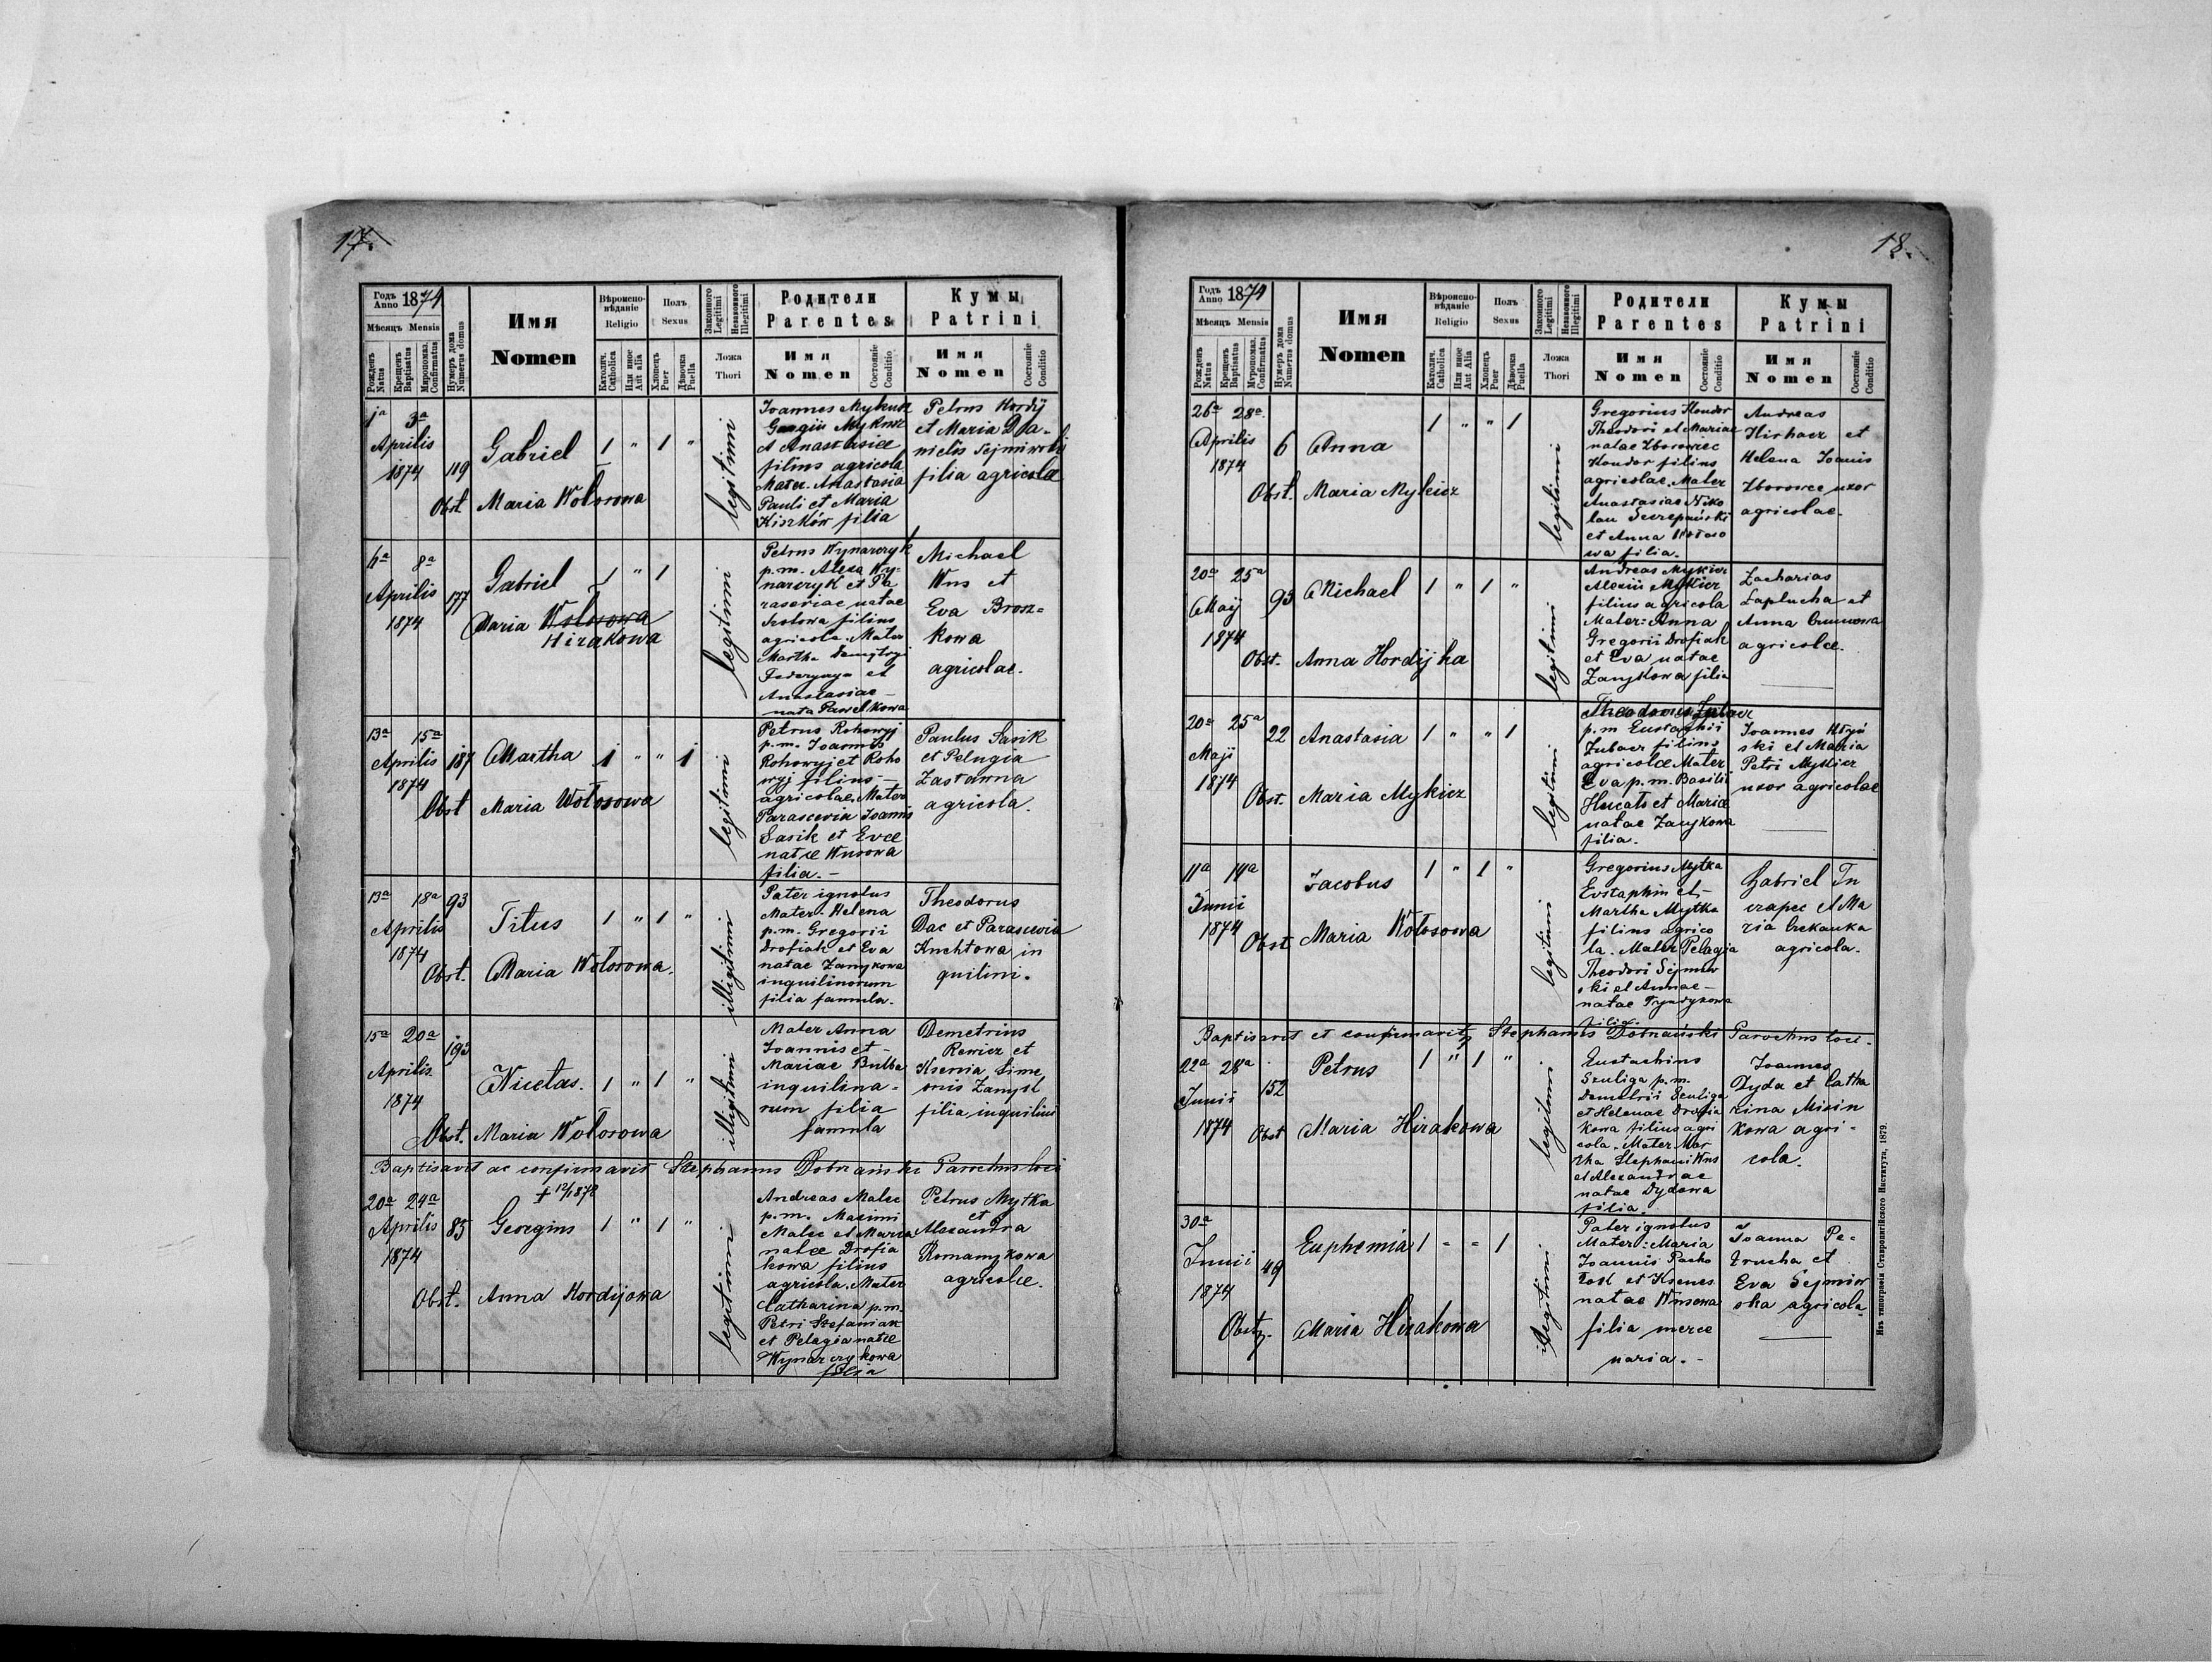 17.
Годъ Anno 1874
Мѣсяцъ Mensis
Рожденъ Natus
Крещенъ Baptisatus
Мѵропомаз. Confirmatus
Нумеръ дома Numerus domus
Имя
Nomen
Вѣроисповѣданіе
Religio
Католич. Catholica
Или иное Aut alia
Полъ
Sexus
Хлопецъ Puer
Дѣвочка Puella
Законного Legitimi
Незаконного Illegitimi
Ложа
Thori
Родители
Parentes
Имя
Nomen
Состояніе Conditio
Кумы
Patrini
Имя
Nomen
Состояніе Conditio
1a 3a
Aprilis
1874 119
Gabriel 1 " 1 "
Obst Maria Wołosowa
legitimi
Joannes Mykicz
Georgii Mykicz
et Anastasiae
filius agricola
Mater. Anastasia
Pauli et Maria
Kiszków filia
Petrus Hordij
et Maria Da-
nielis Sejmiwski
filia agricolae
6a 8a
Aprilis
1874 177
Gabriel 1 " 1
Maria Wołosowa
Hirakowa
legitimi
Petrus Wynarczyk
p.m. Alexa Wy-
narczyk et Pa
rasceviae natae
filius
agricola. Mater
Martha Demytryi
et
Anastasiae
nata Pawelkowa
Michael
Wus et
Eva Brosz=
kowa
agricolae.
13a 15a
Aprilis 187
1874
Martha 1 " " 1
Obst Maria Wołosowa
legitimi
Petrus Rohowyj
p.m. Joannis
Rohowyj et Roho
wyj filius
agricolae. Mater
Parascevia Joannis
Sasik et Evae
natae Wusowa
filia. -
Paulus Sasik
et Pelagia
Zastawna
agricola.
13a 18a 93
Aprilis
1874
Titus 1 " 1 "
Obst. Maria Wołosowa.
illigitimi
Pater ignotus
Mater. Helena
p.m. Gregorii
Drofiak et Eva
natae Zanykowa
inquilinorum
filia famula.
Theodorus
Dac et Parascevia
Knehtowa in
quilini.
15a 20a 193
Aprilis
1874
Nicetas. 1 " 1 "
Obst. Maria Wołosowa
illigitimi
Mater Anna
Joannis et -
Mariae Bubba
inquilina-
rum filia
famula
Demetrius
Rewicz et
Ksenia Sime
onis Zanyk
filia inquilini
Baptisavit ac confirmavit Stephanus Dolnański Parochus loci
20a 24a
Aprilis 85
1874
† 12/1878
Georgius 1 " 1 "
Obst. Anna Hordijowa
legitimi
Andreas Malec
p.m. Maximi
Malec et Maria
natae Drofia
kowa filius
agricola. Mater
Catharina p.m.
Petri Stefaniak
et Pelagia natae
Wynarczykowa
filia
Petrus Mytka
et
Alexandra
Romanykowa
agricolae.
18.
Годъ Anno 1874
Мѣсяцъ Mensis
Рожденъ Natus
Крещенъ Baptisatus
Мѵропомаз. Confirmatus
Нумеръ дома Numerus domus
Имя
Nomen
Вѣроисповѣданіе
Religio
Католич. Catholica
Или иное Aut Alia
Полъ
Sexus
Хлопецъ Puer
Дѣвочка Puella
Законного Legitimi
Незаконного Illegitimi
Ложа
Thori
Родители
Parentes
Имя
Nomen
Состояніе Conditio
Кумы
Patrini
Имя
Nomen
Состояніе Conditio
26a 28a.
Aprilis 6
1874
Anna 1 " " 1
Obst. Maria Mykicz
legitimi
Gregorius Kondor
Theodori et Mariae
natae Zborowiec
Kondor filius
agricolae. Mater
Anastasiae Niko
lau Szczepański
et Anna Wołoso
wa filia.
Andreas
Hirhacz et
Helena Joanis
Zborowec uxor
agricolae.
20a 25a
Maij 93
1874
Michael 1 " 1 "
Obst. Anna Hordijka
legitimi
Andreas Mykicz
Alexii Mykicz
filius agricola
Mater: Anna
Gregorii Drofiak
et Eva natae
Zanykowa filia
Zacharias
Zaplucha et
Anna
agricolae.
20a 25a
Maji 22
1874
Anastasia 1 " " 1
Obst. Maria Mykicz
legitimi
Theodorus Zubacz
p.m Eustachii
Zubacz filius
agricolae Mater
Eva p.m. Basilii
et Mariae
natae Zanykowa
filia.
Joannes
ski et Maria
Petri Mykicz
uxor agricolae
11a 14a
Junii
1874
Jacobus 1 " 1 "
Obst Maria Wołosowa
legitimi
Gregorius Mytka
Evstaphiu et -
Martha Mytka
filius agrico
la. Mater Pelagia
Theodori Sejmiw
ski et Annae -
natae Tyndykowa
filia.
Gabriel Tu
czapec et Ma
ria Czekanka
agricola.
Baptisavit et confirmavit Stephanus Dolnański Parochus loci.
22a 28a
Junii 152
1874
Petrus 1 " 1 "
Obst Maria Hirakowa
legitimi
Eustachius
Szuliga p.m.
Demetrii Szuliga
et Helenae Drofia
kowa filius agri
cola. Mater Mar
tha Stephani Wus
et Alexandrae
natae Dydowa
filia.
Joannes
Dyda et Catha
rina Misin
kowa agri-
cola.
30a
Junii 49
1874
Euphemia 1 - - 1
Obstz. Maria Hirakowa
illegitimi
Pater ignotus
Mater: Maria
Joannis Pacho
łok et Ksenes
natae Wusowa
filia merce
naria. -
Joanna Pe-
trucha et
Eva Sejmiw
ska agricola
Изъ типографіи Ставропигійского Института, 1879.